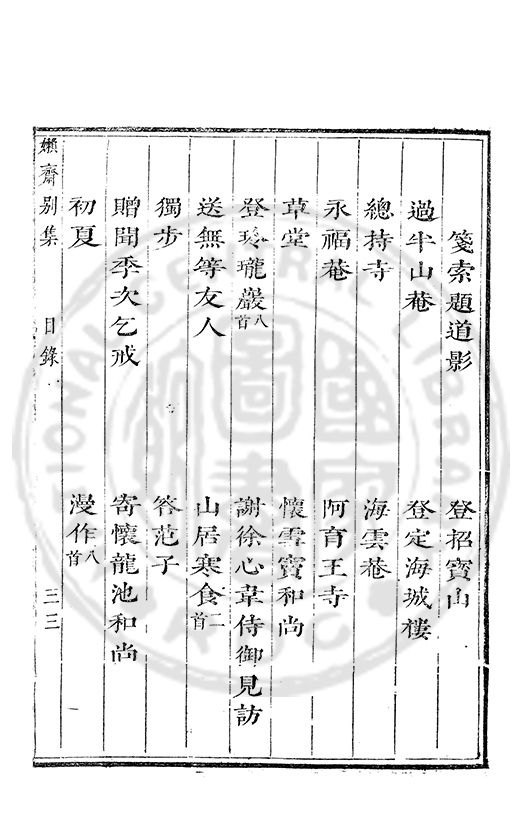 箋索題道影　登招寶山
過半山菴　登定海城樓
總持寺　海雲菴
永福菴　阿育王寺
草堂　懷雪竇和尚
登玲瓏巖八首　謝徐心韋侍御見訪
送無等友人　山居寒食二首
獨步　答范子
贈聞季次乞戒　寄懷龍池和尚
初夏　漫作八首
嬾齋别集　目錄　三三